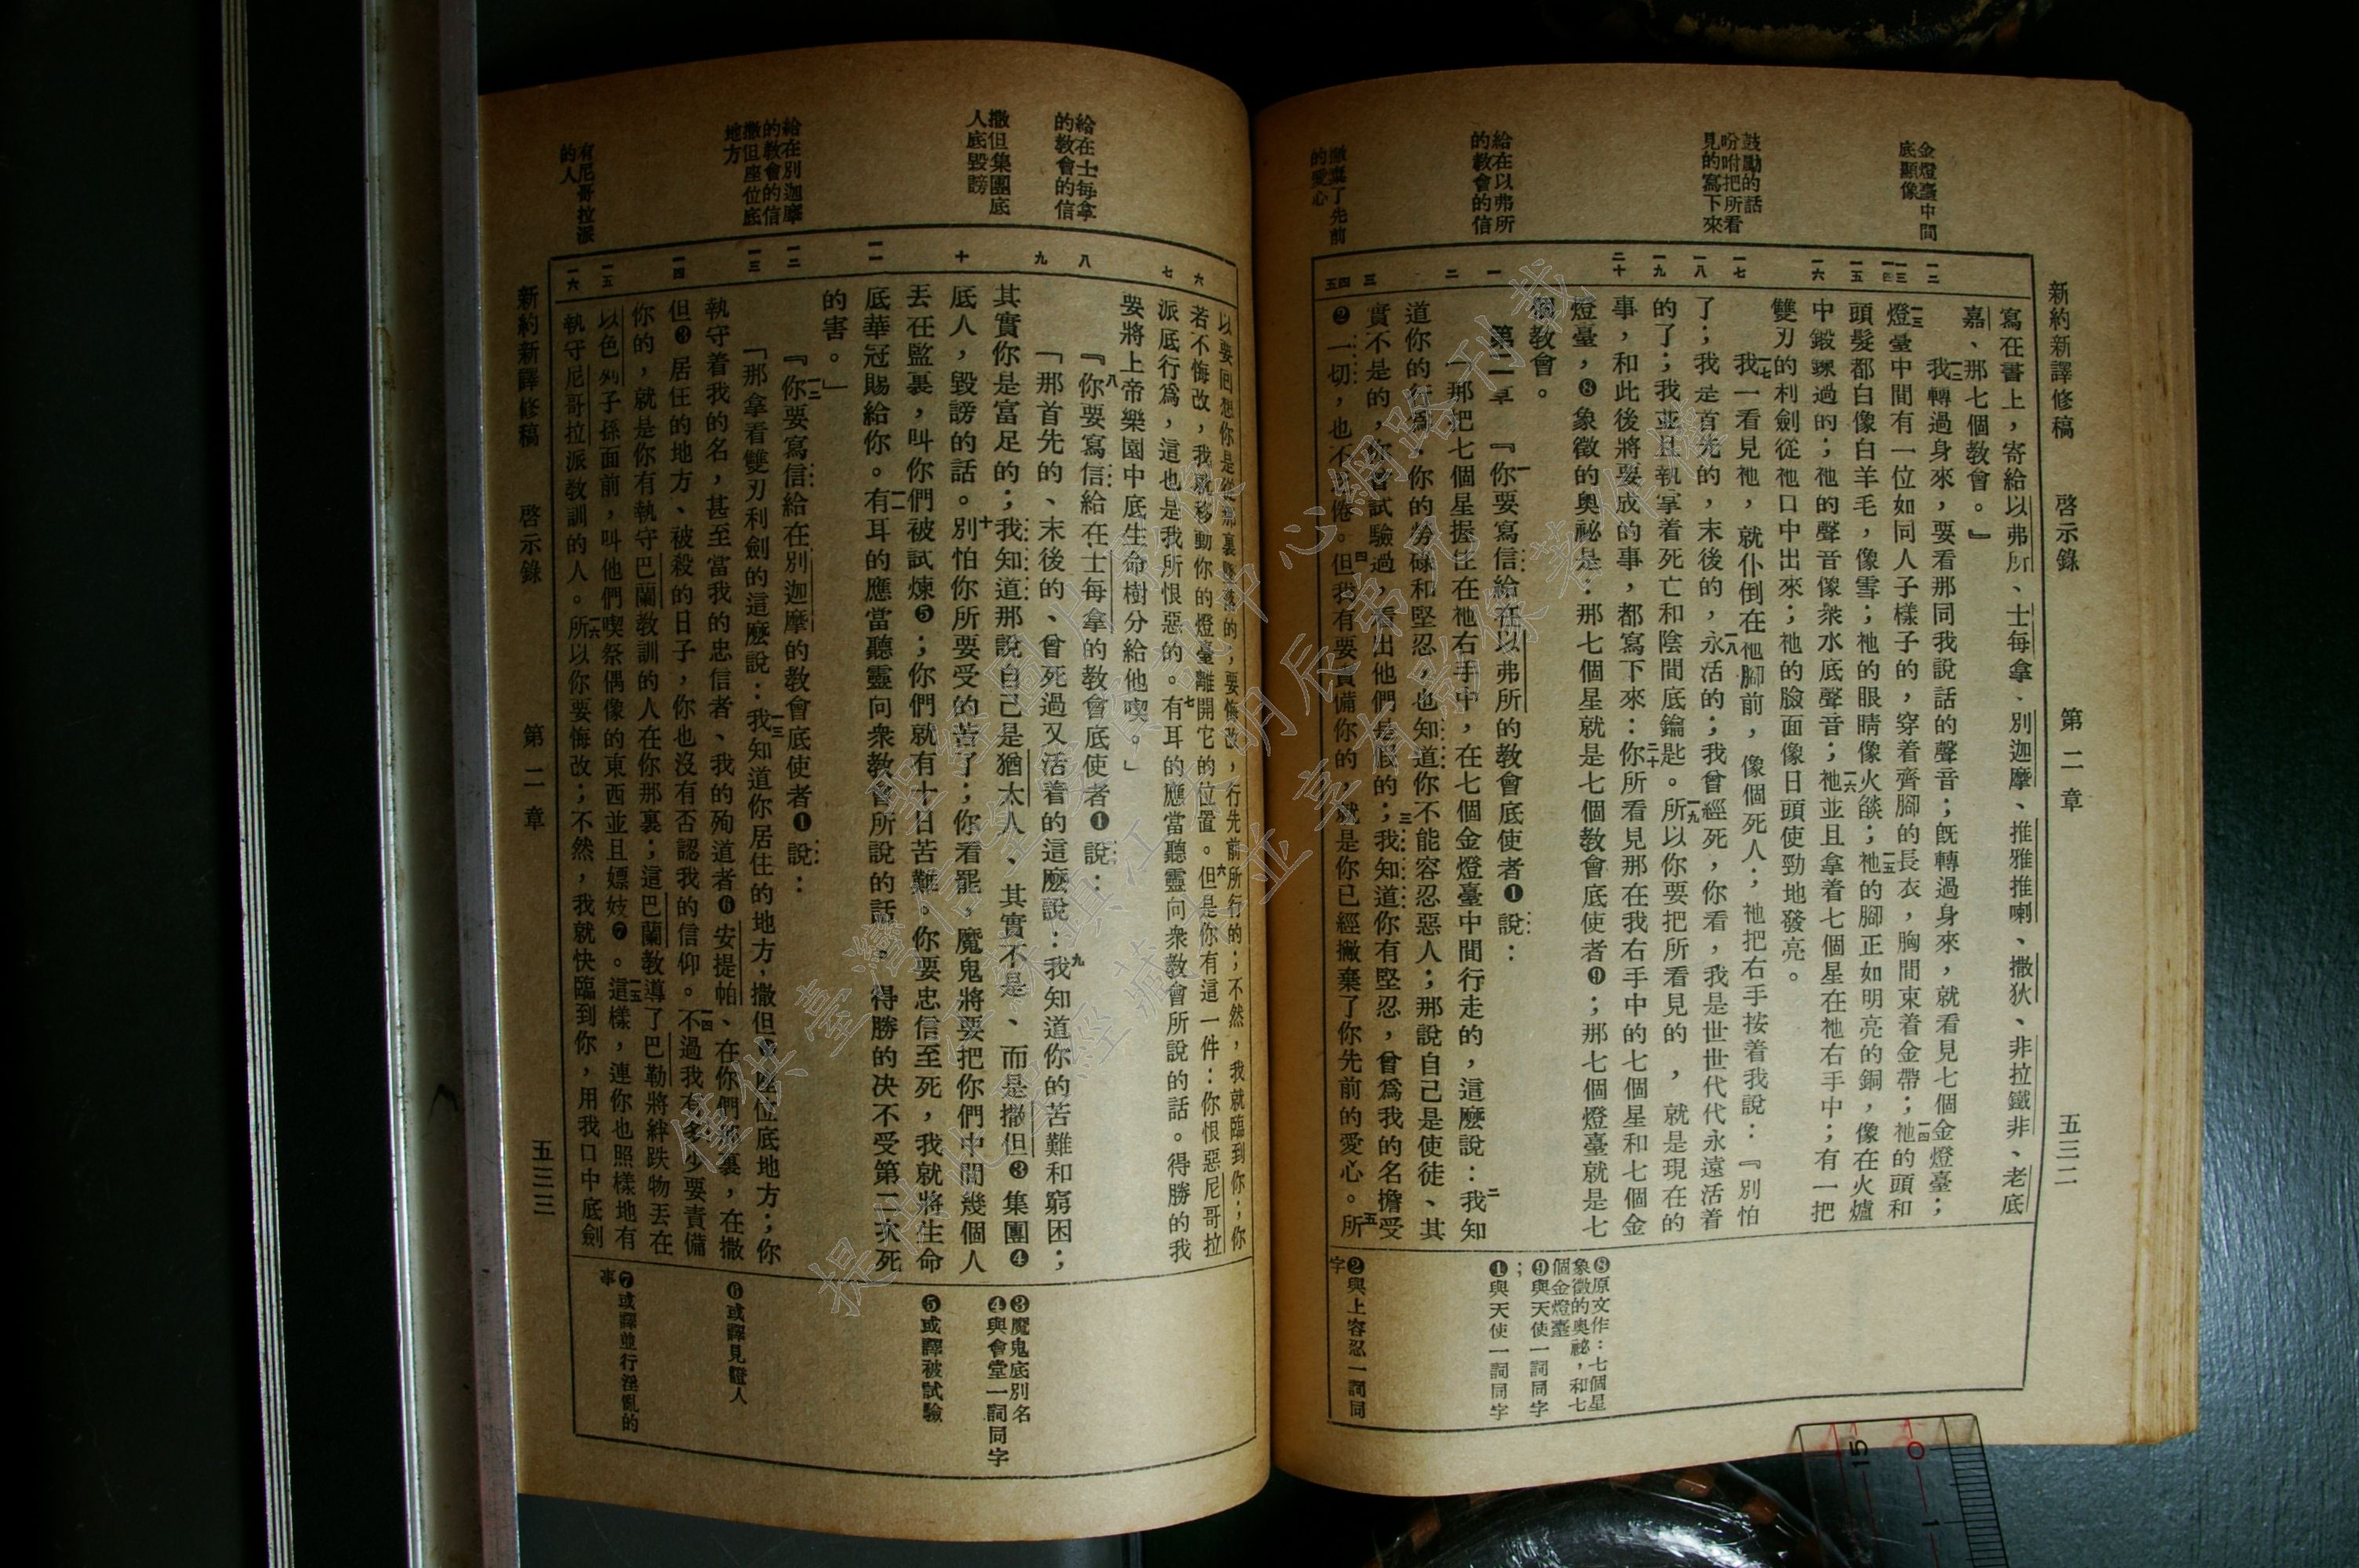 新約新譯修稿 啓示錄 第二章 五三二
金燈臺中間
底顯像
鼓勵的話
吩咐把所看
見的寫下來
給在以弗所
的教會的信
撇棄了先前
的愛心
寫在書上，寄給以弗所、士每拿、別迦摩、推雅推喇、撒狄、非拉鐵非、老底
嘉、那七個教會。』
一二我轉過身來，要看那同我說話的聲音；旣轉過身來，就看見七個金燈臺；
一三燈臺中間有一位如同人子樣子的，穿着齊腳的長衣，胸間束着金帶；一四祂的頭和
頭髮都白像白羊毛，像雪；祂的眼睛像火燄；一五祂的腳正如明亮的銅，像在火爐
中鍛鍊過的；祂的聲音像衆水底聲音；一六祂並且拿着七個星在祂右手中；有一把
雙刃的利劍從祂口中出來；祂的臉面像日頭使勁地發亮。
一七我一看見祂，就仆倒在祂腳前，像個死人；祂把右手按着我說：『別怕
了；我是首先的，末後的，一八永活的；我曾經死，你看，我是世世代代永遠活着
的了；我並且執掌着死亡和陰間底鑰匙。一九所以你要把所看見的，就是現在的
事，和此後將要成的事，都寫下來：二十你所看見那在我右手中的七個星和七個金
燈臺，❽象徵的奧祕是：那七個星就是七個教會底使者❾；那七個燈臺就是七
個教會。
第二章 一『你要寫信給在以弗所的教會底使者❶說：
「那把七個星握住在祂右手中，在七個金燈臺中間行走的，這麼說：二我知
道你的行爲，你的勞碌和堅忍，也知道你不能容忍惡人；那說自己是使徒、其
實不是的，你曾試驗過，看出他們是假的；三我知道你有堅忍，曾爲我的名擔受
❷一切，也不厭倦。四但我有要責備你的，就是你已經撇棄了你先前的愛心。五所
❽原文作：七個星
象徵的奧祕，和七
個金燈臺
❾與天使一詞同字
；
❶與天使一詞同字
❷與上容忍一詞同
字
給在士每拿
的教會的信
撒但集團底
人底毀謗
給在別迦摩
的教會的信
撒但座位底
地方
有尼哥拉派
的人
以要囘想你是從那裏墜落的，要悔改，行先前所行的；不然，我就臨到你；你
若不悔改，我就移動你的燈臺離開它的位置。六但是你有這一件：你恨惡尼哥拉
派底行爲，這也是我所恨惡的。七有耳的應當聽靈向衆教會所說的話。得勝的我
要將上帝樂園中底生命樹分給他喫。」
八『你要寫信給在士每拿的教會底使者❶說：
「那首先的、末後的、曾死過又活着的這麼說：九我知道你的苦難和窮困；
其實你是富足的；我知道那說自己是猶太人、其實不是、而是撒但❸集團❹
底人，毀謗的話。十別怕你所要受的苦了；你看罷，魔鬼將要把你們中間幾個人
丟在監裏，叫你們被試煉❺；你們就有十日苦難。你要忠信至死，我就將生命
底華冠賜給你。一一有耳的應當聽靈向衆教會所說的話。得勝的決不受第二次死
的害。」
一二『你要寫信給在別迦摩的教會底使者❶說：
「那拿着雙刃利劍的這麼說：一三我知道你居住的地方，撒但❸座位底地方；你
執守着我的名，甚至當我的忠信者、我的殉道者❻安提帕、在你們那裏，在撒
但❸居住的地方、被殺的日子，你也沒有否認我的信仰。一四不過我有多少要責備
你的，就是你有執守巴蘭教訓的人在你那裏；這巴蘭教導了巴勒將絆跌物丟在
以色列子孫面前，叫他們喫祭偶像的東西並且嫖妓❼。一五這樣，連你也照樣地有
執守尼哥拉派教訓的人。一六所以你要悔改；不然，我就快臨到你，用我口中底劍
❸魔鬼底別名
❹與會堂一詞同字
❺或譯被試驗
❻或譯見證人
❼或譯並行淫亂的
事
新約新譯修稿 啓示錄 第二章 五三三